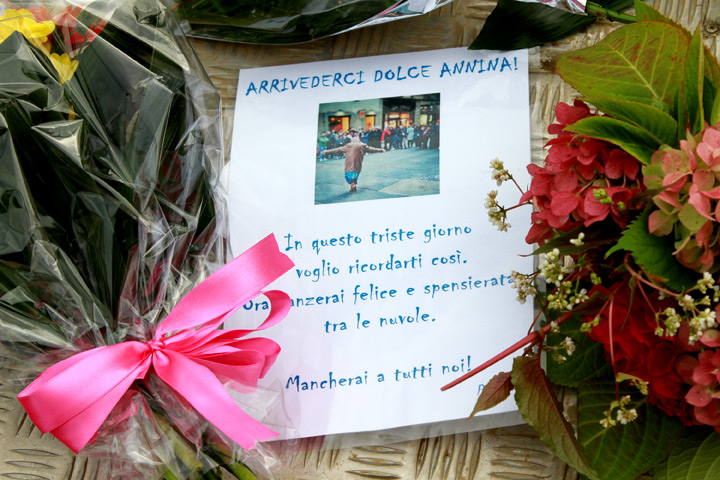 ARRIVEDERCI DOLCE ANNINA!
In questo triste giorno
voglio ricordarti così.
Ora danzerai felice e spensierata
tra le nuvole.
Mancherai a tutti noi!